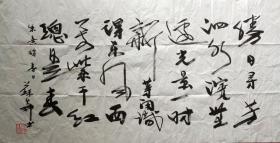 勝日寻芳
泗水滨無
边光景一时
新等闲識
得东风面
万紫千红
總是春
朱熹诗春日